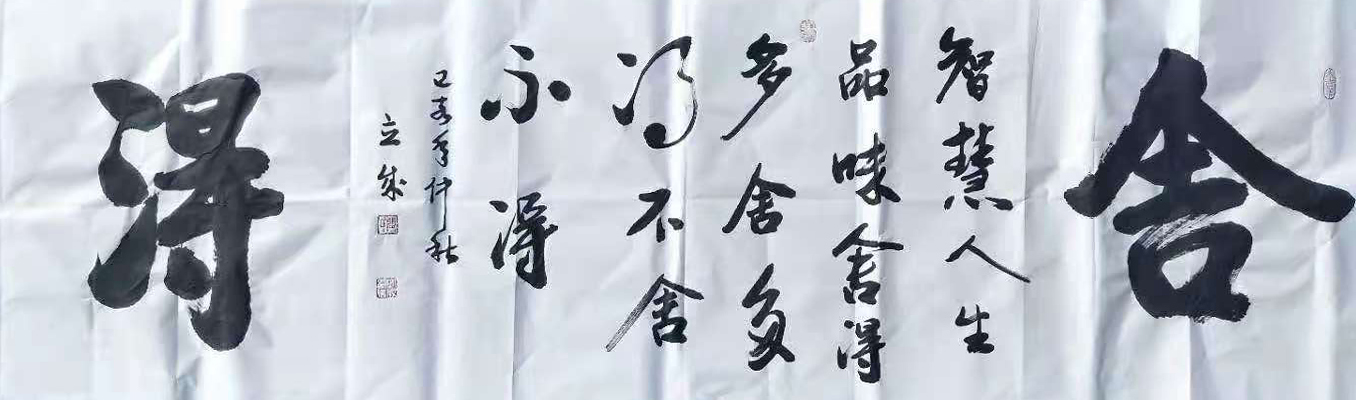 舍
智慧人生
品味舍得
多舍多
得不舍
不得
己亥年仲秋
立成
得